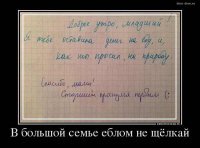 Доброе утро, младший!
Я тебе оставила денег на еду, и,
как ты просил, на природу
Спасибо, мама!
Старший проснулся первым (:
В большой семье еблом не щёлкай